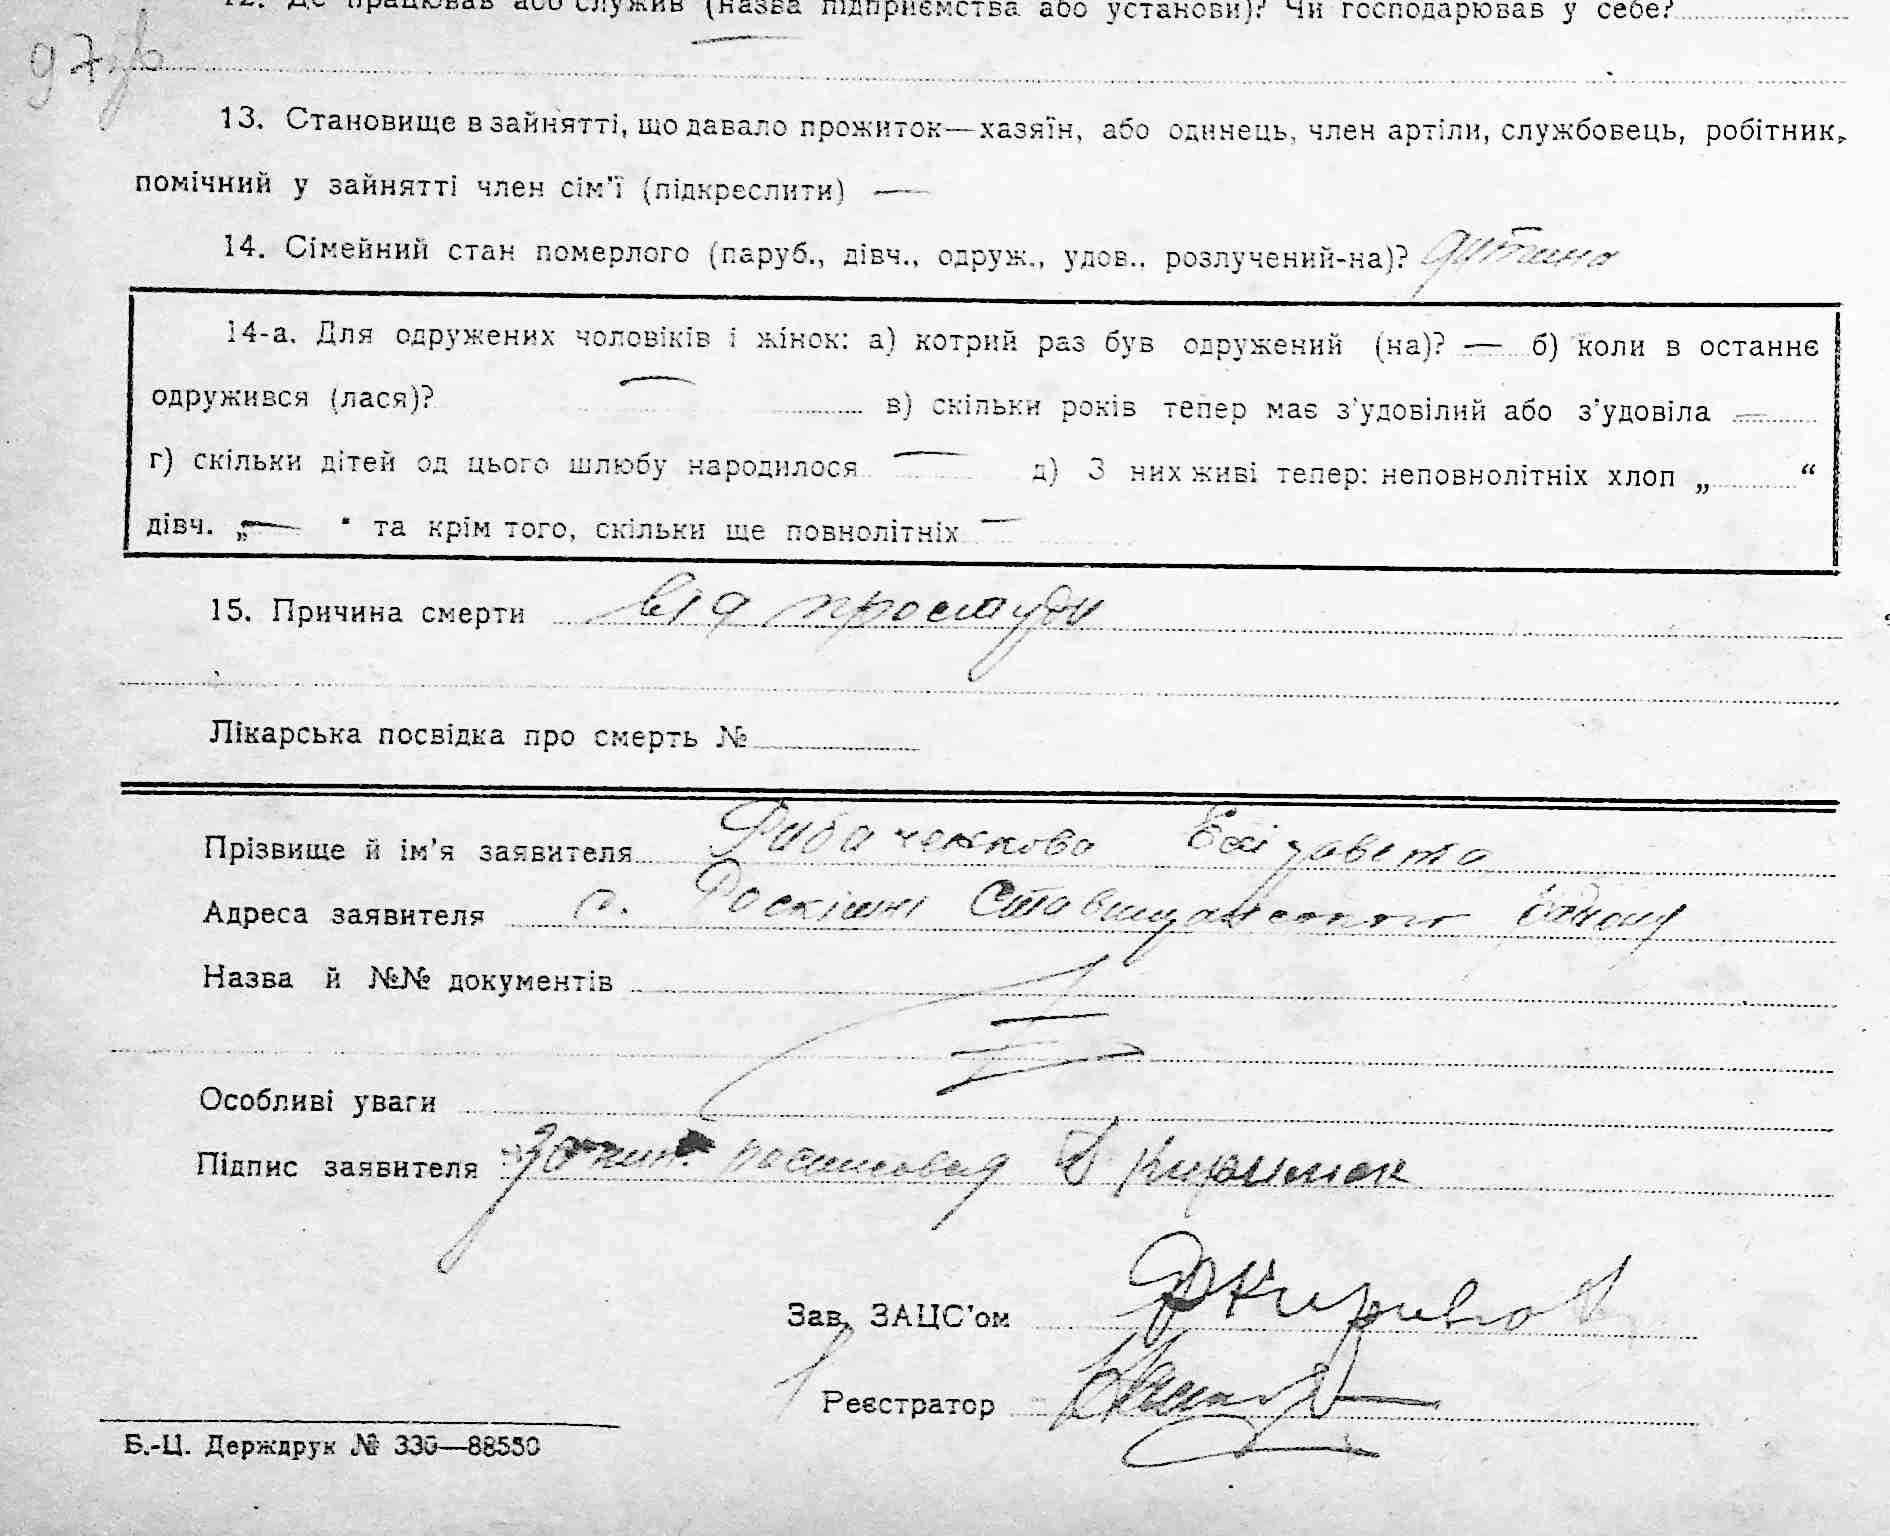 12. Де працював або служив (назва підприємства або установи)? Чи господарював у себе?
—
97
13. Становище в зайнятті, що давало прожиток—хазяїн, або одинець, член артіли, службовець, робітник,
помічний у зайнятті член сім'ї (підкреслити) —
14. Сімейний стан померлого (паруб., дівч., одруж., удов., розлучений-на)? дитина
14-а. Для одружених чоловіків і жінок: а) котрий раз був одружений (на)? — б) коли в останнє
одружився (лася)? — в) скільки років тепер має з'удовілий або з'удовіла —
г) скільки дітей од цього шлюбу народилося — д) З них живі тепер: неповнолітніх хлоп „ “
дівч. „— “ та крім того, скільки ще повнолітніх —
15. Причина смерти від простуди
Лікарська посвідка про смерть №
Прізвище й ім'я заявителя Рибаченкова Єлізавета
Адреса заявителя с. Роскішні Ставищанського району
Назва й №№ документів
Особливі уваги
Підпис заявителя росписовая
Зав. ЗАЦС'ом
Реєстратор
Б.-Ц. Держдрук № 336—88550